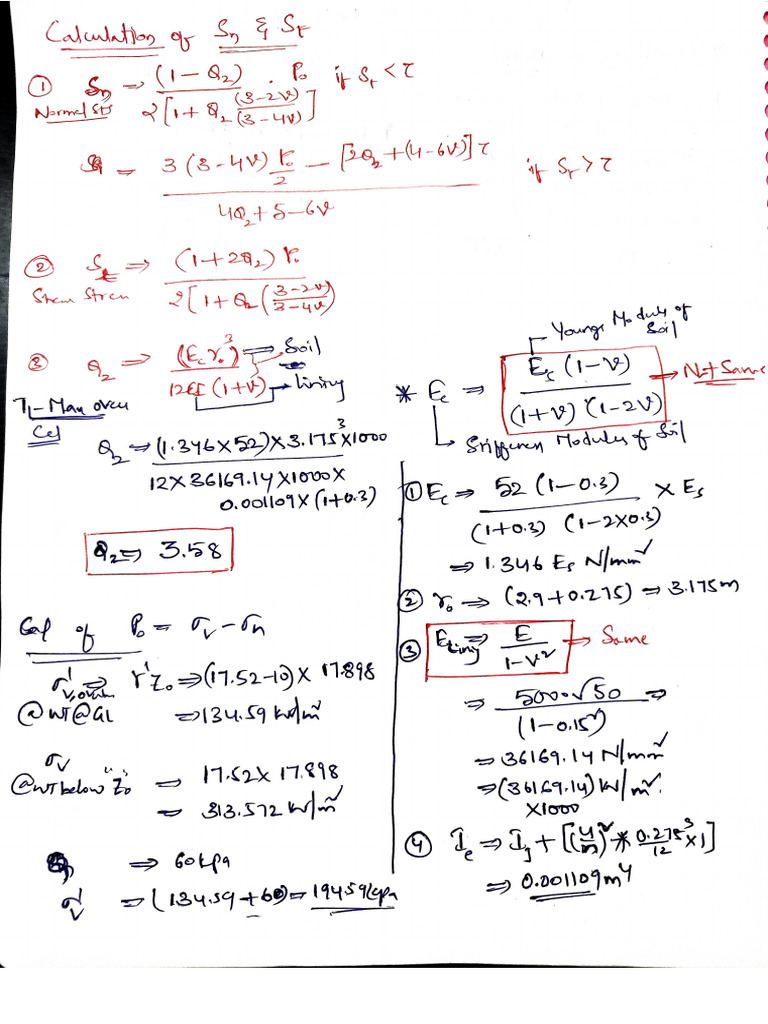 Calculation of Sn & St
① Sn ⇒ (1 − Q2) / 2[1 + Q2 (3−2ν)/(3−4ν)] . Po if St < τ
Normal Sts
= 3(3−4ν) Po/2 − [2Q2 + (4−6ν)] τ / 4Q2 + 5 − 6ν if St > τ
② St ⇒ (1 + 2Q2) Po / 2[1 + Q2 (3−2ν / 3−4ν)
③ Q2 ⇒ (Ec ro³) / 12EI (1+ν)
⇒ Soil
→ lining
Cel
Q2 ⇒ (1.346 × 52) × 3.175³ × 1000 / 12 × 36169.14 × 1000 × 0.001109 × (1+0.3)
Q2 ⇒ 3.58
Cal of Po = σv − σn
σ'v, ⇒ γ'Zo ⇒ (17.52−10) × 17.898
@WT@GL ⇒ 134.59 kN/m²
σv
@WT below "Zo" ⇒ 17.52 × 17.898
⇒ 313.572 kN/m²
⇒ 60 kpa
σ'v ⇒ (134.59 + 60) ⇒ 194.59 kpa
Youngs Modulus of Soil
* Ec ⇒ Es (1−ν) / (1+ν) (1−2ν) → Not Same
Stiffness Modulus of Soil
① Ec ⇒ 52 (1−0.3) / (1+0.3) (1−2×0.3) × Es
⇒ 1.346 Es N/mm²
② ro ⇒ (2.9 + 0.275) ⇒ 3.175m
③ Eling ⇒ E / 1−ν² → Same
⇒ 5000√50 / (1−0.15²) ⇒
⇒ 36169.14 N/mm²
⇒ (36169.14) kN/m².
×1000
④ Ie ⇒ Ij + [(4/n)² * 0.275³/12 × 1]
⇒ 0.001109 m⁴